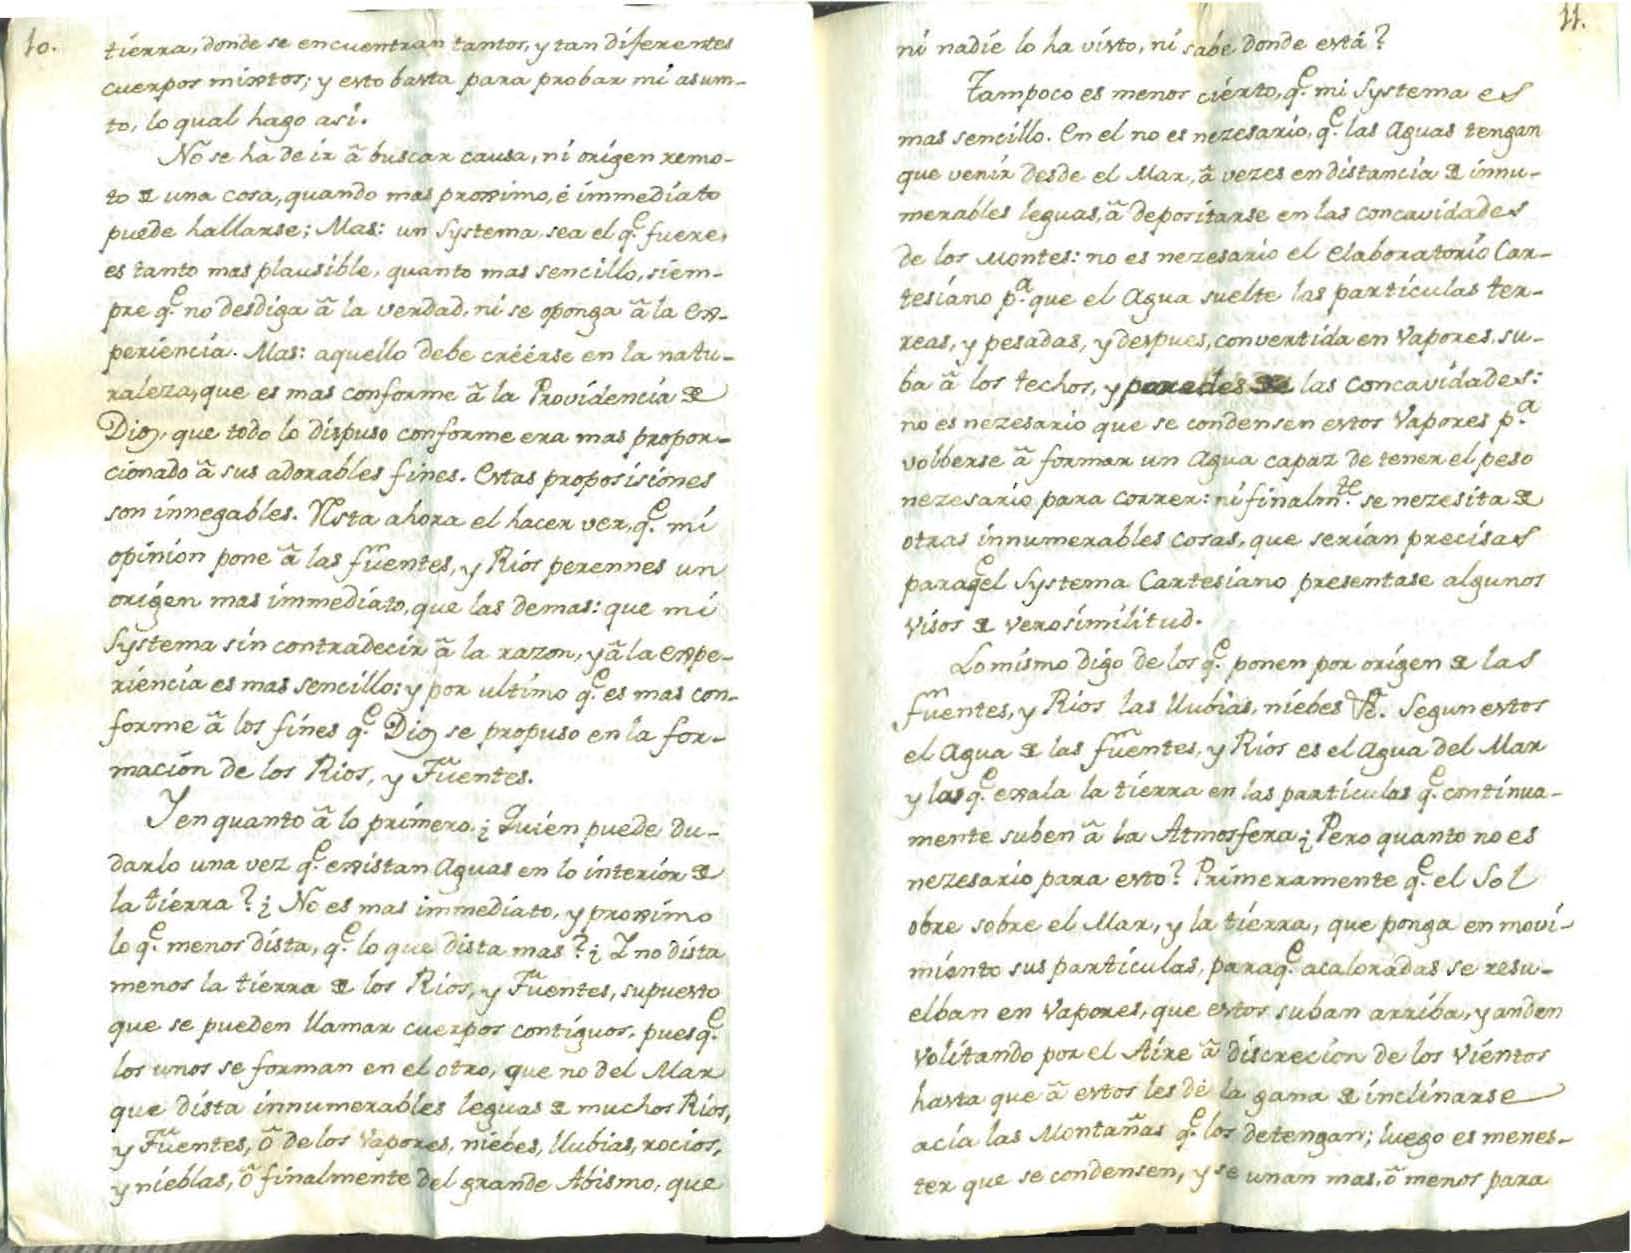 10.
tierra, donde se encuentran tantos, y tan diferentes
cuerpos mixtos; y esto basta para probar mi asum-
to, lo qual hago asi.
No se ha de ir â buscar causa, ni origen remo-
to de una cosa, quando mas proximo, é immediato
puede hallarse; Mas: un Systema, sea el q.e fuere,
es tanto mas plausible, quanto mas sencillo, siem-
pre q.e no desdiga â la verdad, ni se oponga â la Ex-
periencia. Mas: aquello debe créerse en la natu-
raleza, que es mas conforme â la Providencia de
Dios, que todo lo dispuso conforme era mas propor-
cionado â sus adorables fines. Estas proposisiones
son innegables. Rsta ahora el hacer ver, q.e mi
opinion pone â las fuentes, y Rios perennes un
origen mas immediato, que las demas: que mi
Systema sin contradecir â la razon, y â la expe-
riencia es mas sencillo: y por ultimo q.e es mas con-
forme â los fines q.e Dios se propuso en la for-
macion de los Rios, y Fuentes.
Y en quanto â lo primero ¿Quien puede du-
darlo una vez q.e existan Aguas en lo interior de
la tierra? ¿No es mas immediato, y proximo
lo q.e menos dista, q.e lo que dista mas? ¿Y no dista
menos la tierra de los Rios, y Fuentes, supuesto
que se pueden llamar cuerpos contiguos, pues q.e
los unos se forman en el otro, que no del Mar
que dista innumerables leguas de muchos Rios,
y Fuentes, ô de los Vapores, niebes, llubias, rocios,
y nieblas, ô finalmente del grande Abismo, que
11.
ni nadie lo ha visto, ni sabe donde está?
Tampoco es menos cierto, q.e mi Systema es
mas sencillo. En el no es nezesario, q.e las Aguas tengan
que venir desde el Mar, â vezes en distancia de innu-
merables leguas, â depositarse en las concavidades
de los Montes: no es nezesario el elaboratorio Car-
tesiano p.a que el Agua suelte las particulas ter-
reas, y pesadas, y despues, convertida en Vapores, su-
ba â los techos, y paredes de las concavidades:
no es nezesario que se condensen estos Vapores p.a
volberse â formar un Agua capaz de tener el peso
nezesario para correr: ni finalm.te se nezesita de
otras innumerables cosas, que serian precisas
para q.e el Systema Cartesiano presentase algunos
visos de verosimilitud.
Lo mismo digo de los q.e ponen por origen de las
fuentes, y Rios las llubias, niebes &c. Segun estos
el Agua de las fuentes, y Rios es el Agua del Mar
y las q.e exala la tierra en las particulas q.e continua-
mente suben â la Atmosfera; ¿Pero quanto no es
nezesario para esto? Primeramente q.e el Sol
obre sobre el Mar, y la tierra, que ponga en movi-
miento sus particulas, para q.e acaloradas se resu-
elban en Vapores, que estos suban arriba, y anden
volitando por el Aire â discrecion de los Vientos
hasta que â estos les dé la gana de inclinarse
acia las Montañas q.e los detengan; luego es menes-
ter que se condensen, y se unan mas, ô menos para